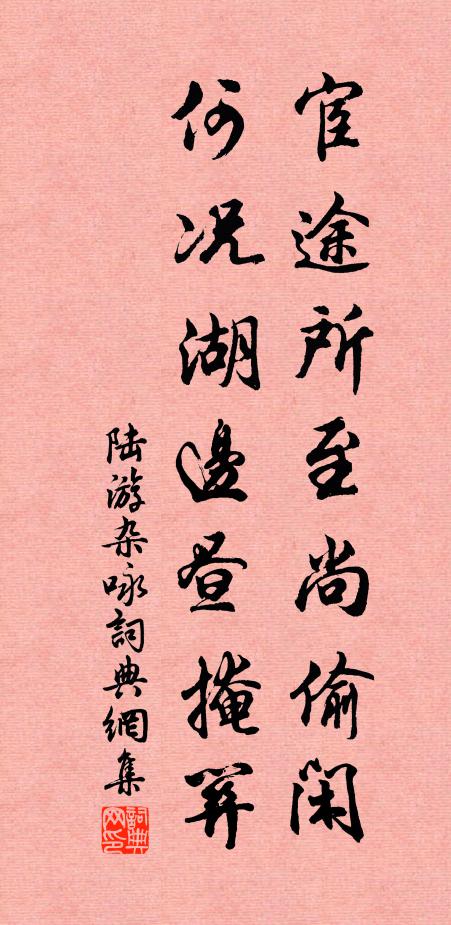 宦途所至尚偷闲
何况湖邊昼掩關
陆游杂咏詞典網集
詞典网印